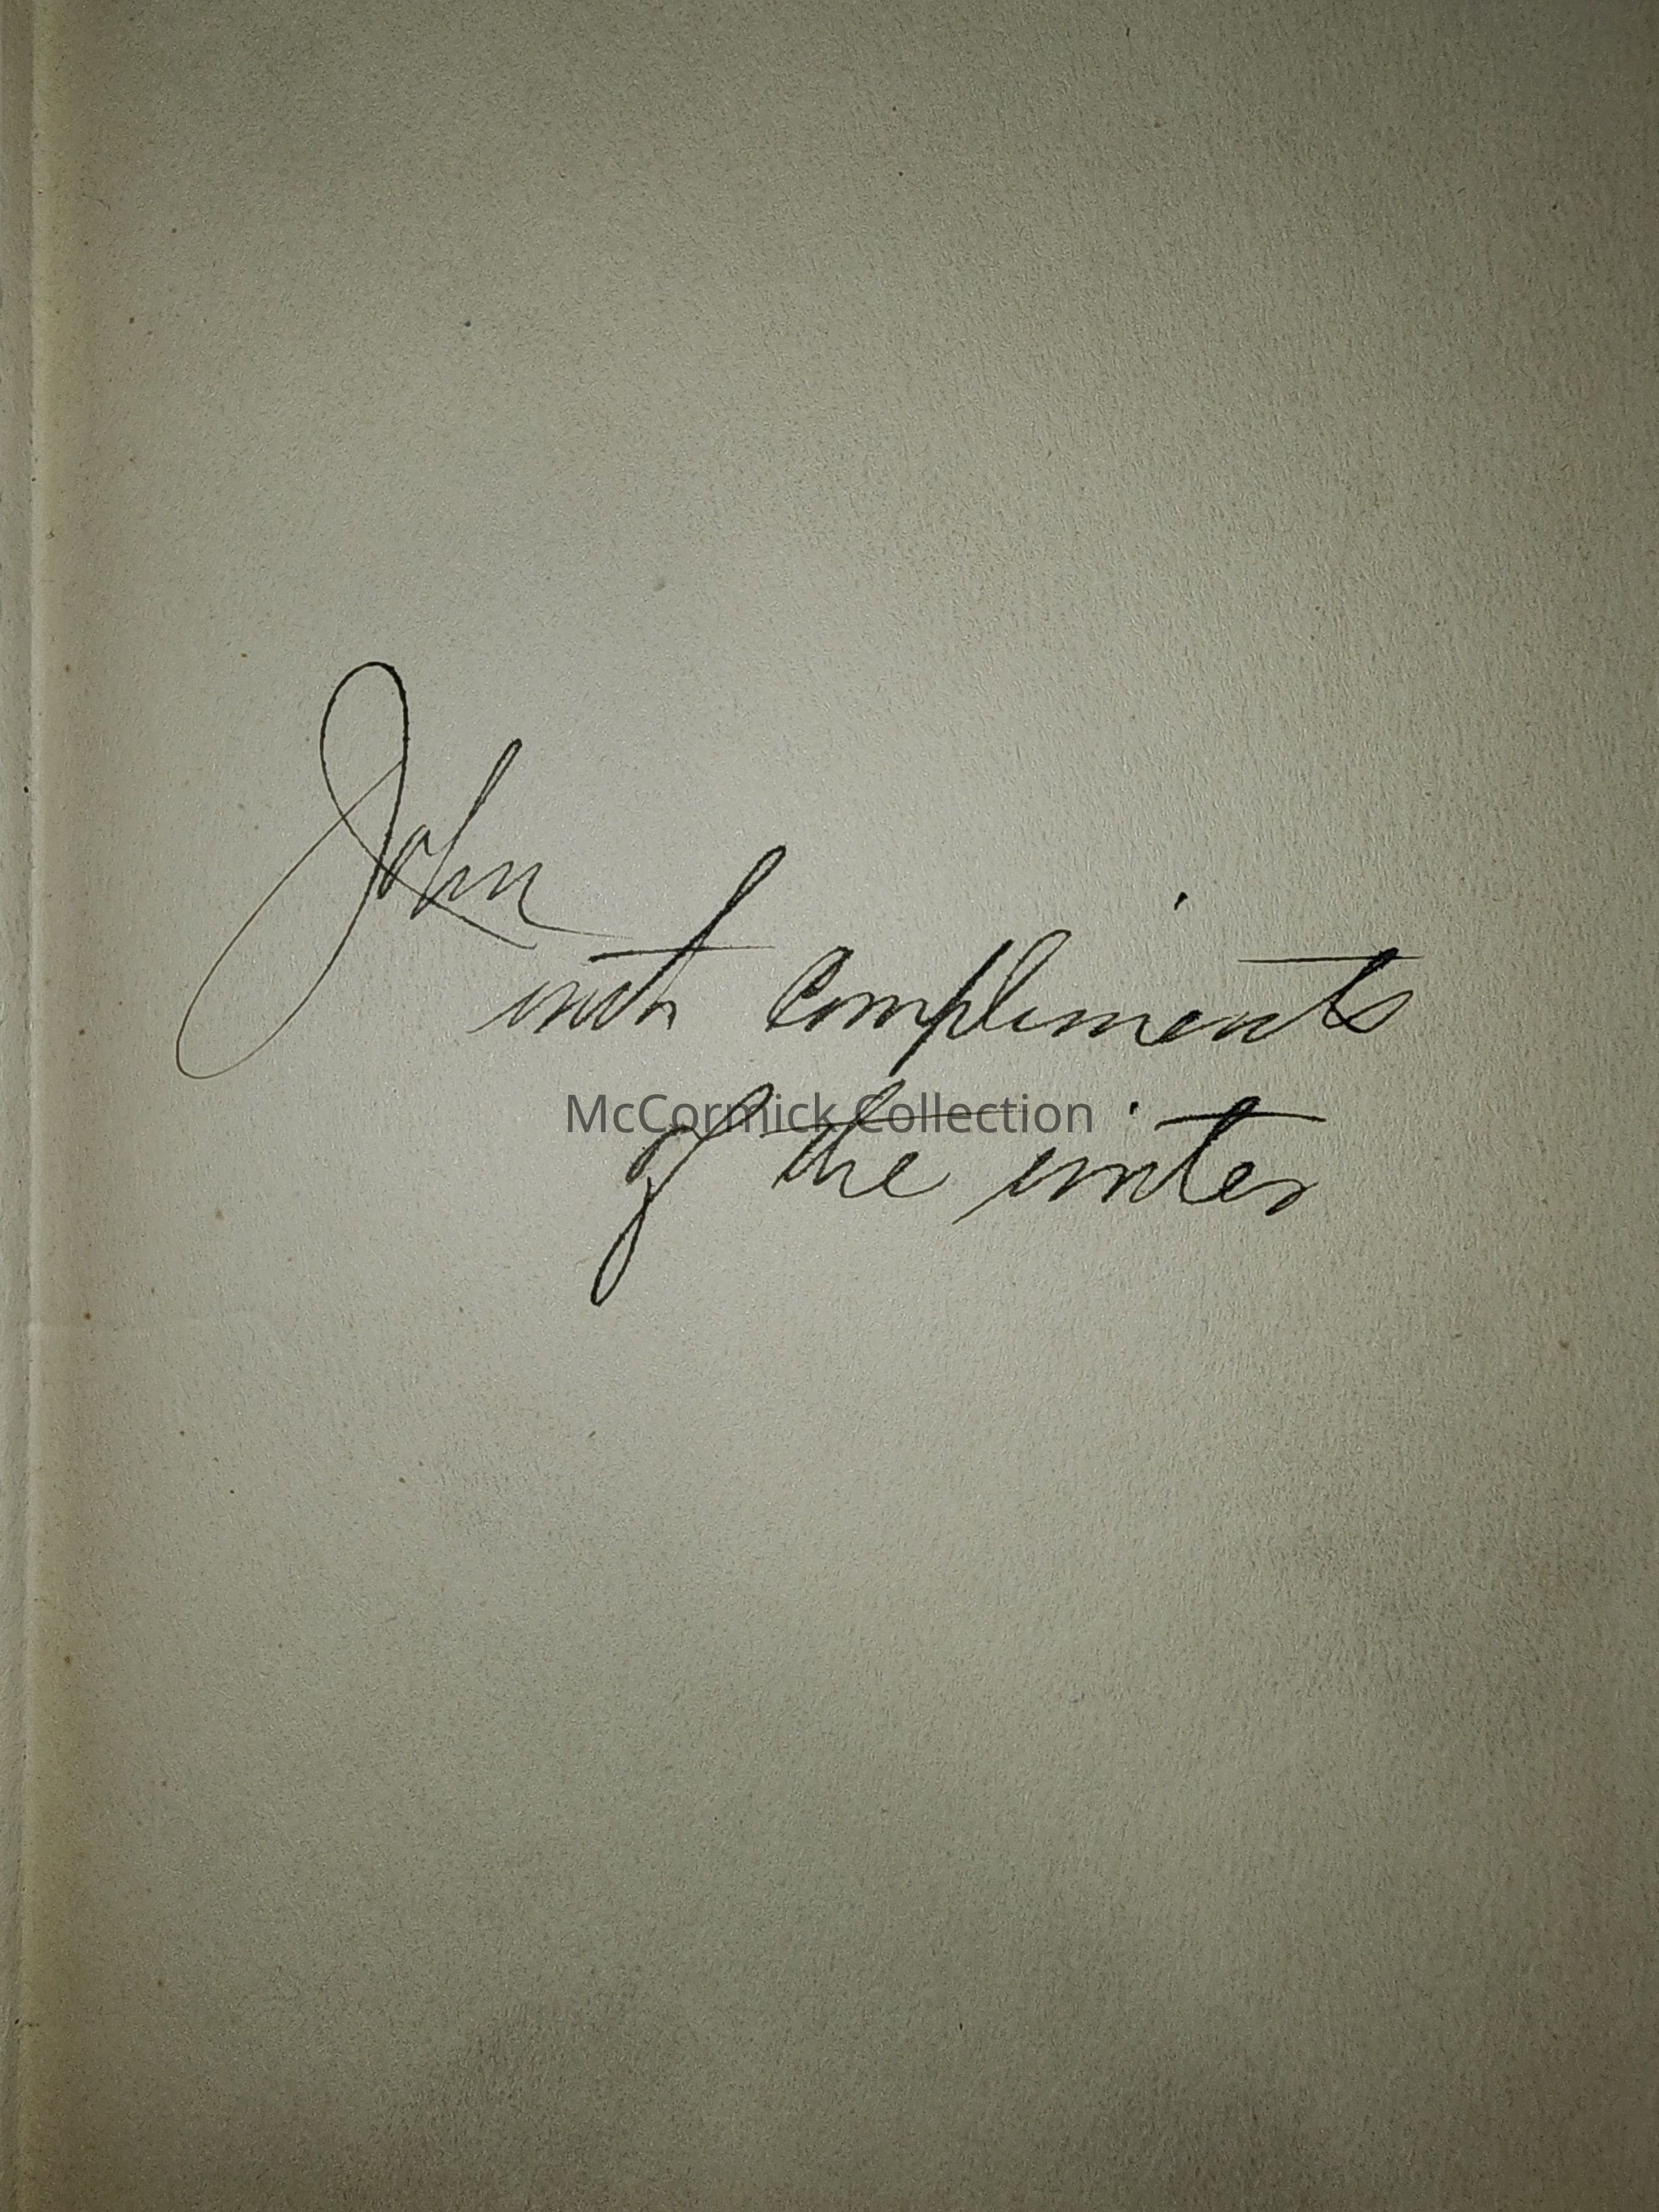 John
with compliments
McCormick Collection
of the writer